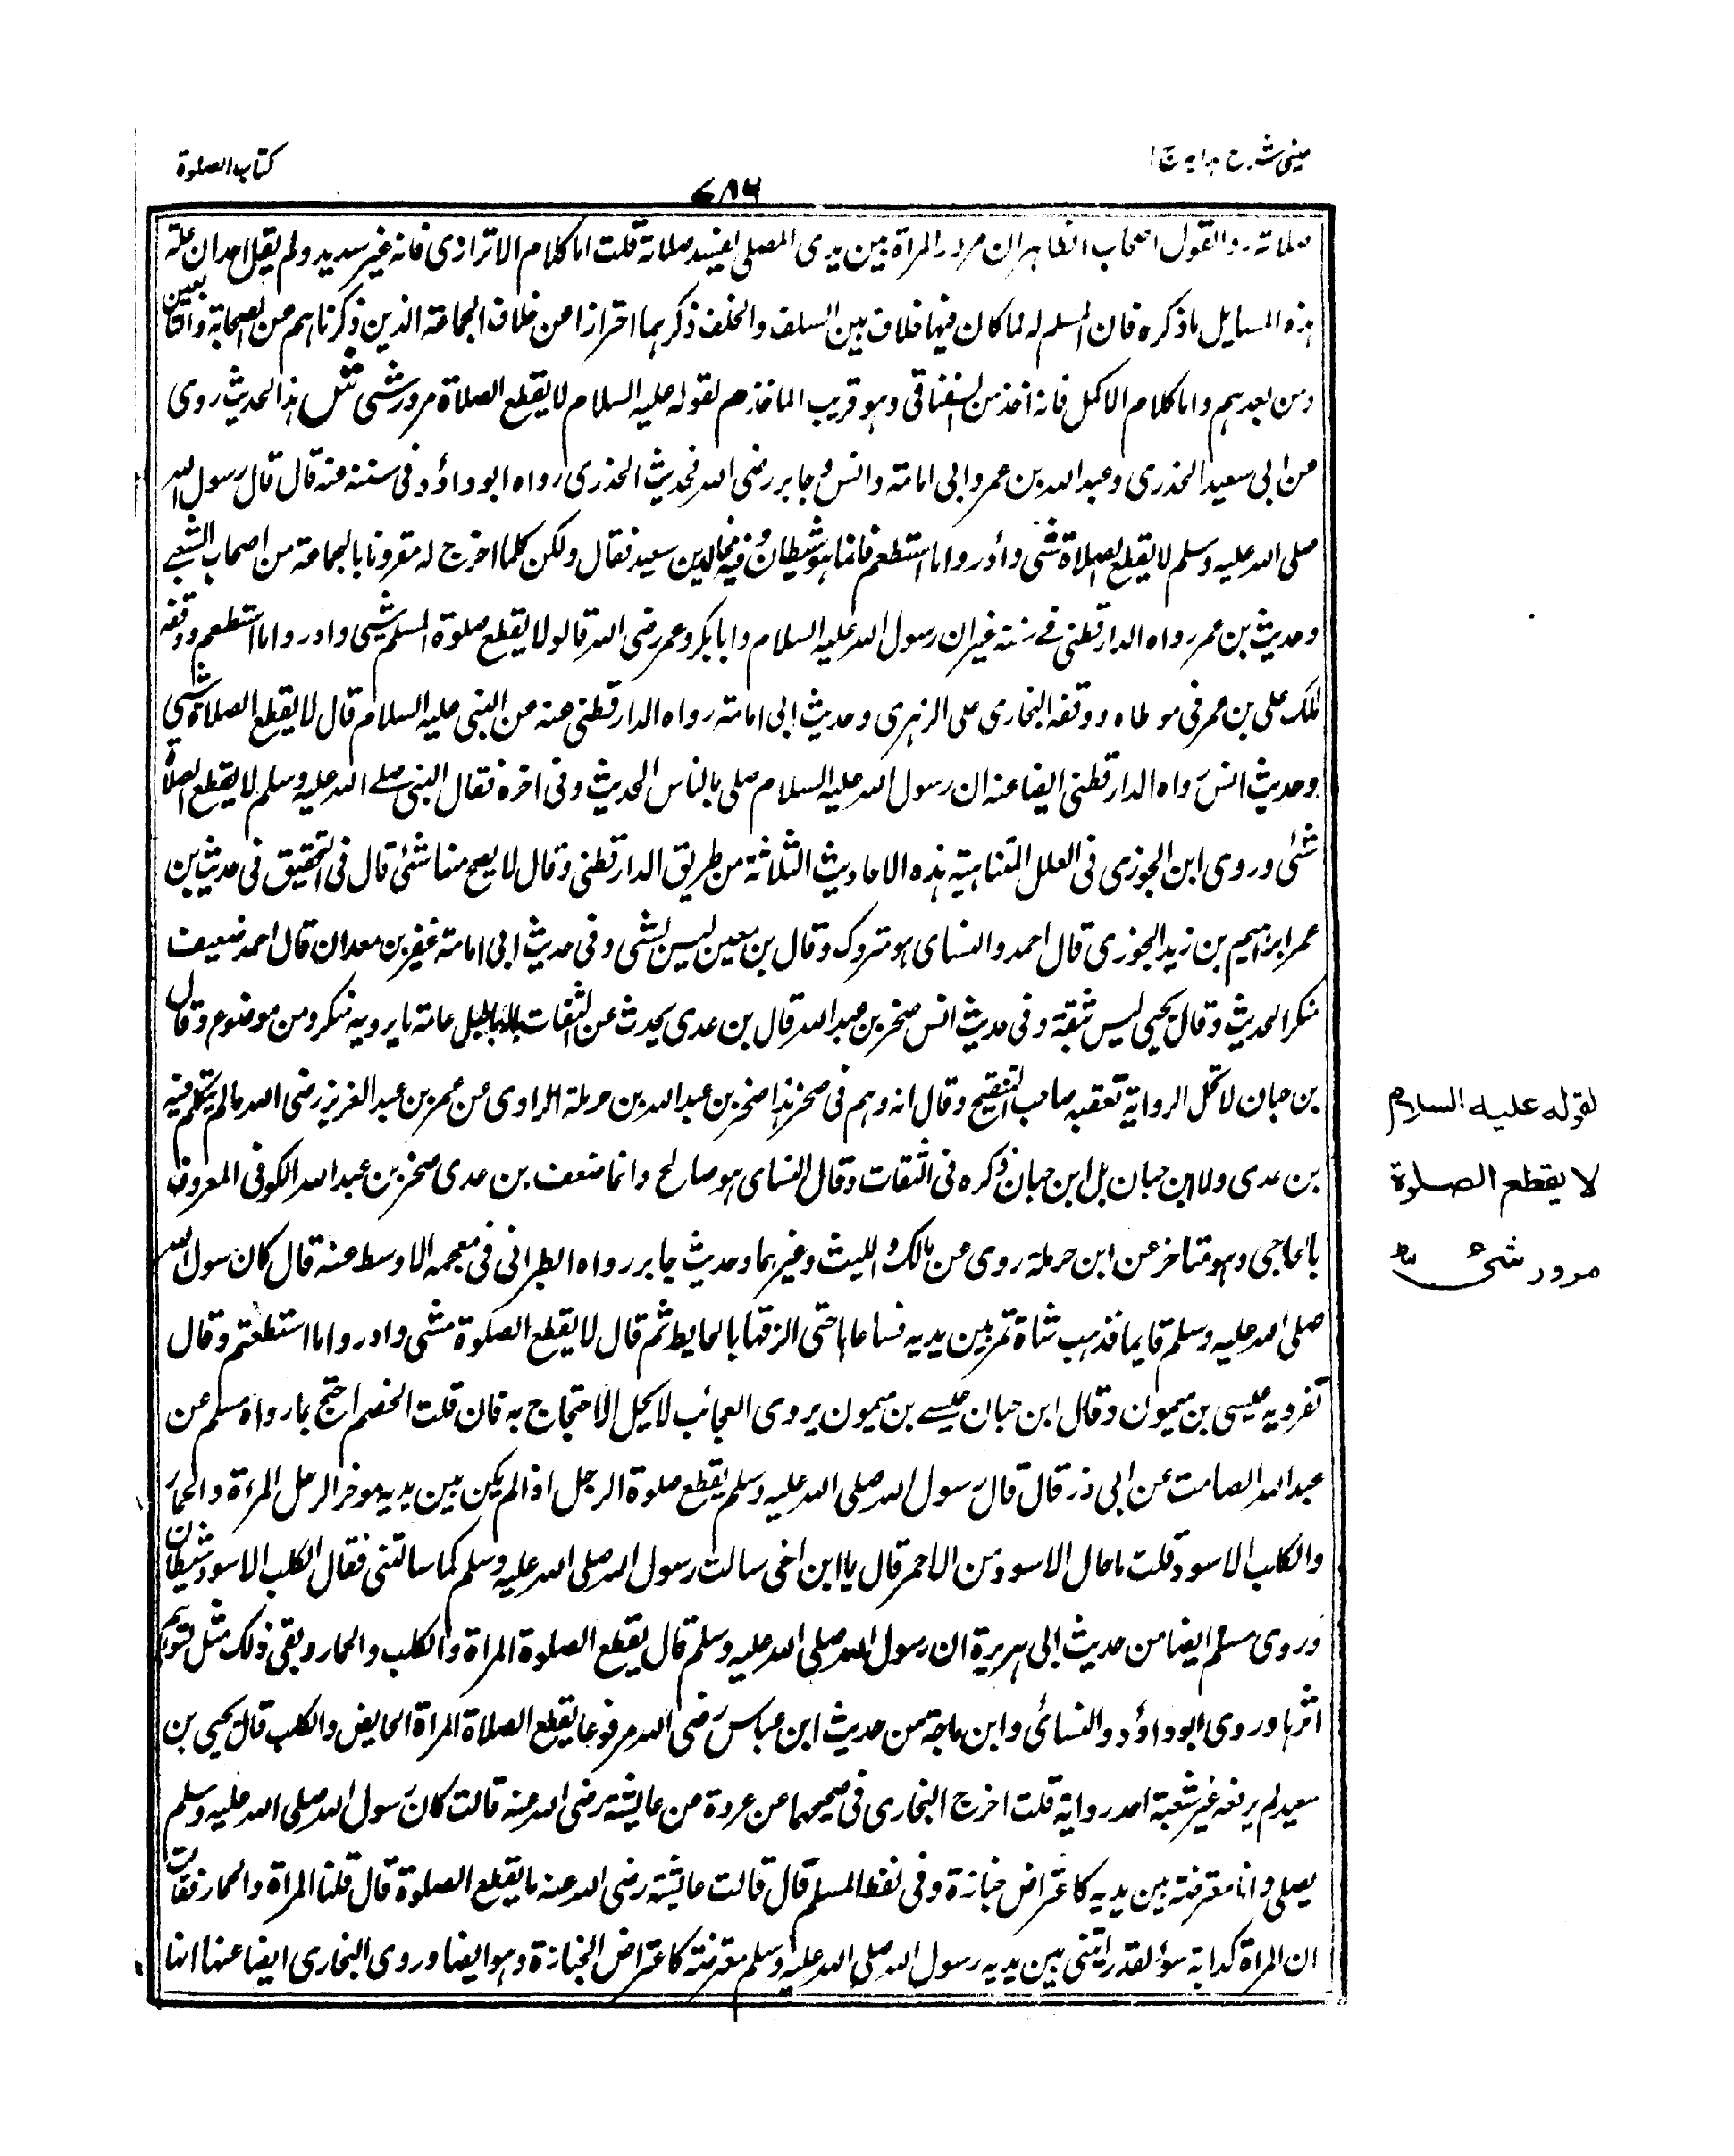 عینی شرح ہدایہ ج ا
كتاب الصلوة
۷۸۶
صلاته رد القول اصحاب الظاہر ان مرور المرأة بین یدی المصلی یفسد صلاتة قلت اما کلام الاترازی فانه غیر سدید ولم یقل احد ان علة
ہذه المسایل ماذکره فان المسلم له لما کان فیہا خلاف بین السلف والخلف ذکرہما احترازا عن خلاف الجماعة الذین ذکرناہم من الصحابة والتابعین
ومن بعدہم واما کلام الاکمل فانه اخذ من السغناقی وہو قریب الماخذ م لقوله علیه السلام لا یقطع الصلاة مرور شئی ش ہذا الحدیث روی
عن ابی سعید الخدری وعبدالله بن عمر وابی امامة وانس وجابر رضی الله فحدیث الخدری رواه ابوداؤد فی سننه عنه قال قال رسول الله
صلی الله علیه وسلم لا یقطع الصلاة شئی وأدروا ما استطعتم فانما ہو شیطان وفیه مجالد بن سعید فقال ولکن کلما اخرج له مقرونا بالجماعة من اصحاب الشعبی
وحدیث بن عمر رواه الدارقطنی فے سننه غیر ان رسول الله علیه السلام وابا بکر وعمر رضی الله قالو لا یقطع صلوة المسلم شیی وادروا ما استطعتم ووقفه
ملک علی بن عمر فی موطاه ووقفه البخاری علی الزہری وحدیث ابی امامة رواه الدارقطنی عنه عن النبی علیه السلام قال لا یقطع الصلاة شیی
وحدیث انس رواه الدارقطنی ایضا عنه ان رسول الله علیه السلام صلی بالناس الحدیث وفی اخره فقال النبی صلے الله علیه وسلم لا یقطع الصلاة
شئی وروی ابن الجوزی فی العلل المتناہیة ہذه الاحادیث الثلاثة من طریق الدارقطنی وقال لا یصح منہا شئی قال فی التحقیق فی حدیث بن
عمر ابراہیم بن زید الجوزی قال احمد والنسای ہو متروک وقال بن معین لیس بشی وفی حدیث ابی امامة عفیر بن معدان قال احمد ضعیف
منکر الحدیث وقال یحیی لیس بثقة وفی حدیث انس صخر بن عبدالله قال بن عدی یحدث عن الثقات بالاباطیل عامة مایرویه منکر ومن موضوع وقال
بن حبان لا تحل الروایة تعقبه صاحب التنقیح وقال انه وہم فی صخر ہذا صخر بن عبدالله بن حرملة الراوی عن عمر بن عبدالعزیز رضی الله عالم یتکلم فیه
بن عدی ولا ابن حبان بل ابن حبان ذکره فی الثقات وقال النسای ہو صالح وانما ضعف بن عدی صخر بن عبدالله الکوفی المعروف
بالحاجی وہو متاخر عن ابن حرملة روی عن مالک واللیث وغیرہما وحدیث جابر رواه الطبرانی فی معجمه الاوسط عنه قال کان رسول الله
صلی الله علیه وسلم قایما فذہب شاة تمر بین یدیه فساعاہا حتی الزقہا بالحایط ثم قال لا یقطع الصلوة شی وادروا ما استطعتم وقال
تفرد به عیسی بن میمون وقال ابن حبان عیسے بن میمون یروی العجائب لا یحل الاحتجاج به فان قلت الخصم احتج بما رواه مسلم عن
عبدالله الصامت عن ابی ذر قال قال رسول الله صلی الله علیه وسلم یقطع صلوة الرجل اذا لم یکن بین یدیه موخر الرحل المرءة والحمار
والکلب الاسود قلت ما حال الاسود من الاحمر قال یا ابن اخی سالت رسول الله صلی الله علیه وسلم کما سالتنی فقال الکلب الاسود شیطان
وروی مسلم ایضا من حدیث ابی ہریرة ان رسول الله صلی الله علیه وسلم قال یقطع الصلوة المراة والکلب والحمار وبقی ذلک مثل
اثرہا وروی ابوداؤد والنسائی وابن ماجة من حدیث ابن عباس رضی الله مرفوعا یقطع الصلاة المراة الحایض والکلب قال یحیی بن
سعید لم یرفعه غیر شعبة احد روایة قلت اخرج البخاری فی صحیحہما عن عروة عن عایشة رضی الله عنه قالت کان رسول الله صلی الله علیه وسلم
یصلی وانا معترضة بین یدیه کاعتراض جنازة وفی لفظ المسلم قال قالت عایشة رضی الله عنه ما یقطع الصلوة قال قلنا المراة والحمار فقالت
ان المراة کدابة سوٴ لقد رایتنی بین یدیه رسول الله صلی الله علیه وسلم معترضة کاعتراض الجنازة وہو ایضا وروی البخاری ایضا عنہا انہا
لقوله علیه السلام
لا یقطع الصلوة
مرور شئ